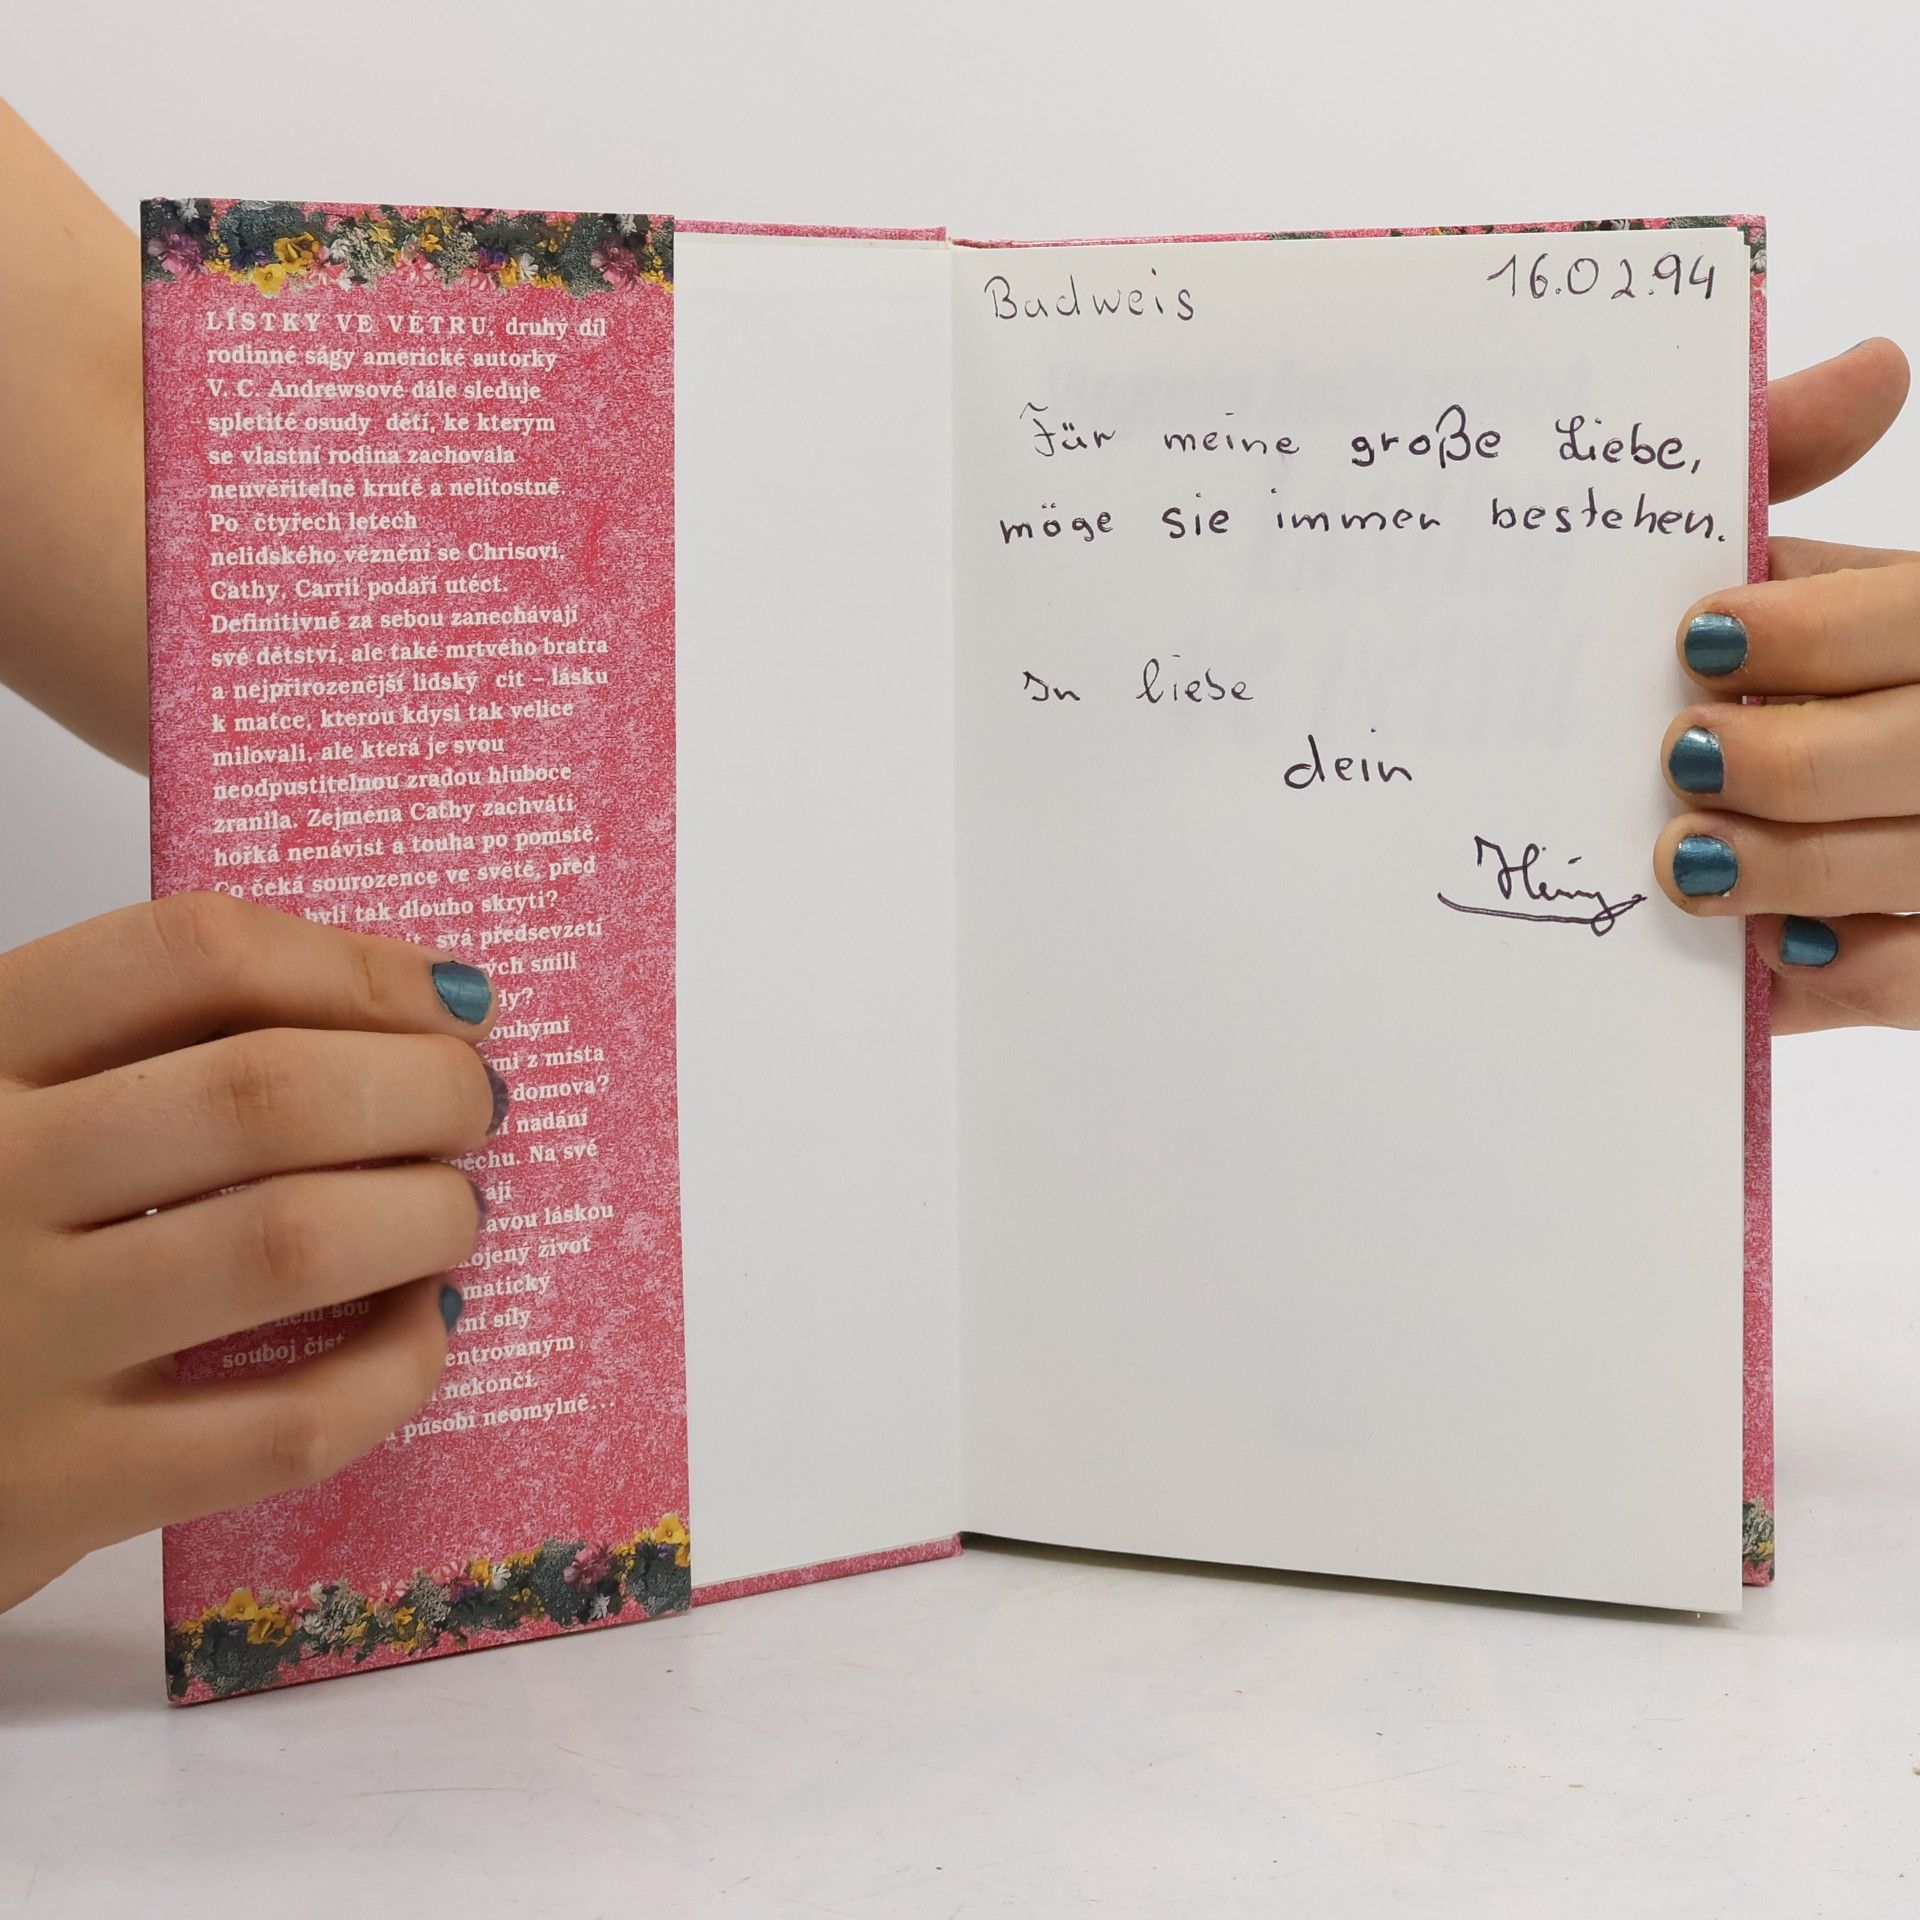 LÍSTKY VE VĚTRU, druhý díl
rodinné ságy americké autorky
V. C. Andrewsové dále sleduje
spletité osudy dětí, ke kterým
se vlastní rodina zachovala
neuvěřitelně krutě a nelítostně.
Po čtyřech letech
nelidského věznění se Chrisovi,
Cathy, Carrii podaří utéct.
Definitivně za sebou zanechávají
své dětství, ale také mrtvého bratra
a nejpřirozenější lidský cit – lásku
k matce, kterou kdysi tak velice
milovali, ale která je svou
neodpustitelnou zradou hluboce
zranila. Zejména Cathy zachvátí
hořká nenávist a touha po pomstě.
Co čeká sourozence ve světě, před
byli tak dlouho skryti?
svá předsevzetí
ých snili
dy?
ouhými
mi z místa
domova?
í nadání
pěchu. Na své
ají
avou láskou
kojený život
maticky
tní síly
souboj čist
entrovaným
nekončí.
působí neomylně...
Budweis 16.02.94
Für meine große Liebe,
möge sie immer bestehen.
In liebe
dein